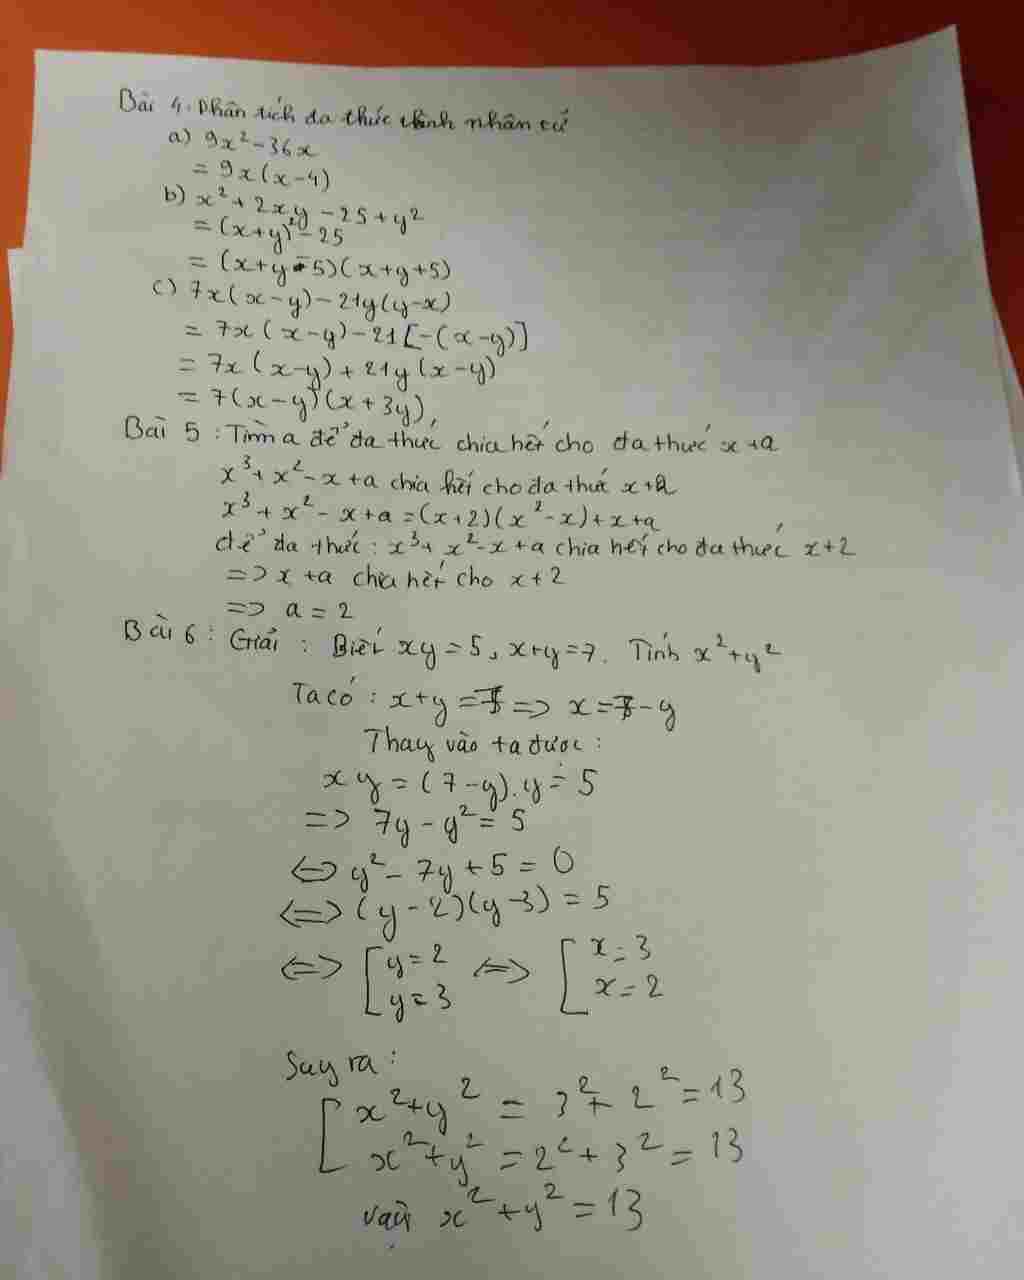 Bài 4. Phân tích đa thức thành nhân tử
a) 9x² - 36x
= 9x(x-4)
b) x² + 2xy - 25 + y²
= (x+y)² - 25
= (x+y-5)(x+y+5)
c) 7x(x-y) - 21y(y-x)
= 7x(x-y) - 21[-(x-y)]
= 7x(x-y) + 21y(x-y)
= 7(x-y)(x+3y)
Bài 5 : Tìm a để đa thức chia hết cho đa thức x+a
x³ + x² - x + a chia hết cho đa thức x+2
x³ + x² - x + a = (x+2)(x² - x) + x + a
để đa thức : x³ + x² - x + a chia hết cho đa thức x+2
=> x + a chia hết cho x + 2
=> a = 2
Bài 6 : Giải : Biết xy = 5, x+y = 7. Tính x² + y²
Ta có : x + y = 7 => x = 7 - y
Thay vào ta được :
xy = (7-y).y = 5
=> 7y - y² = 5
<=> y² - 7y + 5 = 0
<=> (y-2)(y-3) = 5
<=> [ y = 2 <=> [ x = 3
y = 3 x = 2
Suy ra :
[ x² + y² = 3² + 2² = 13
x² + y² = 2² + 3² = 13
vậy x² + y² = 13